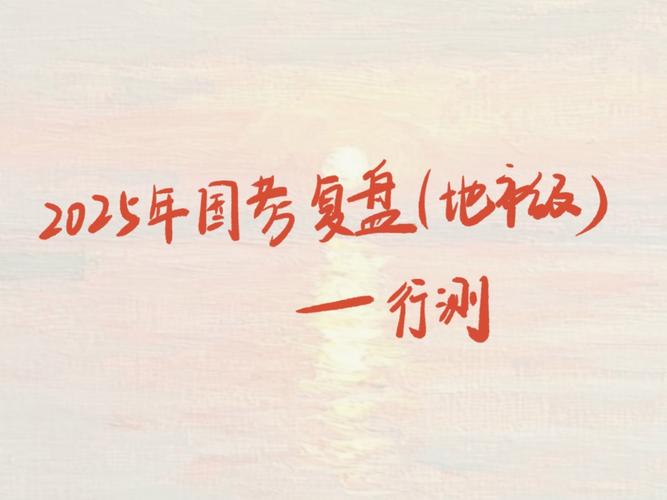 2025年国考复盘(地市级)
—行测